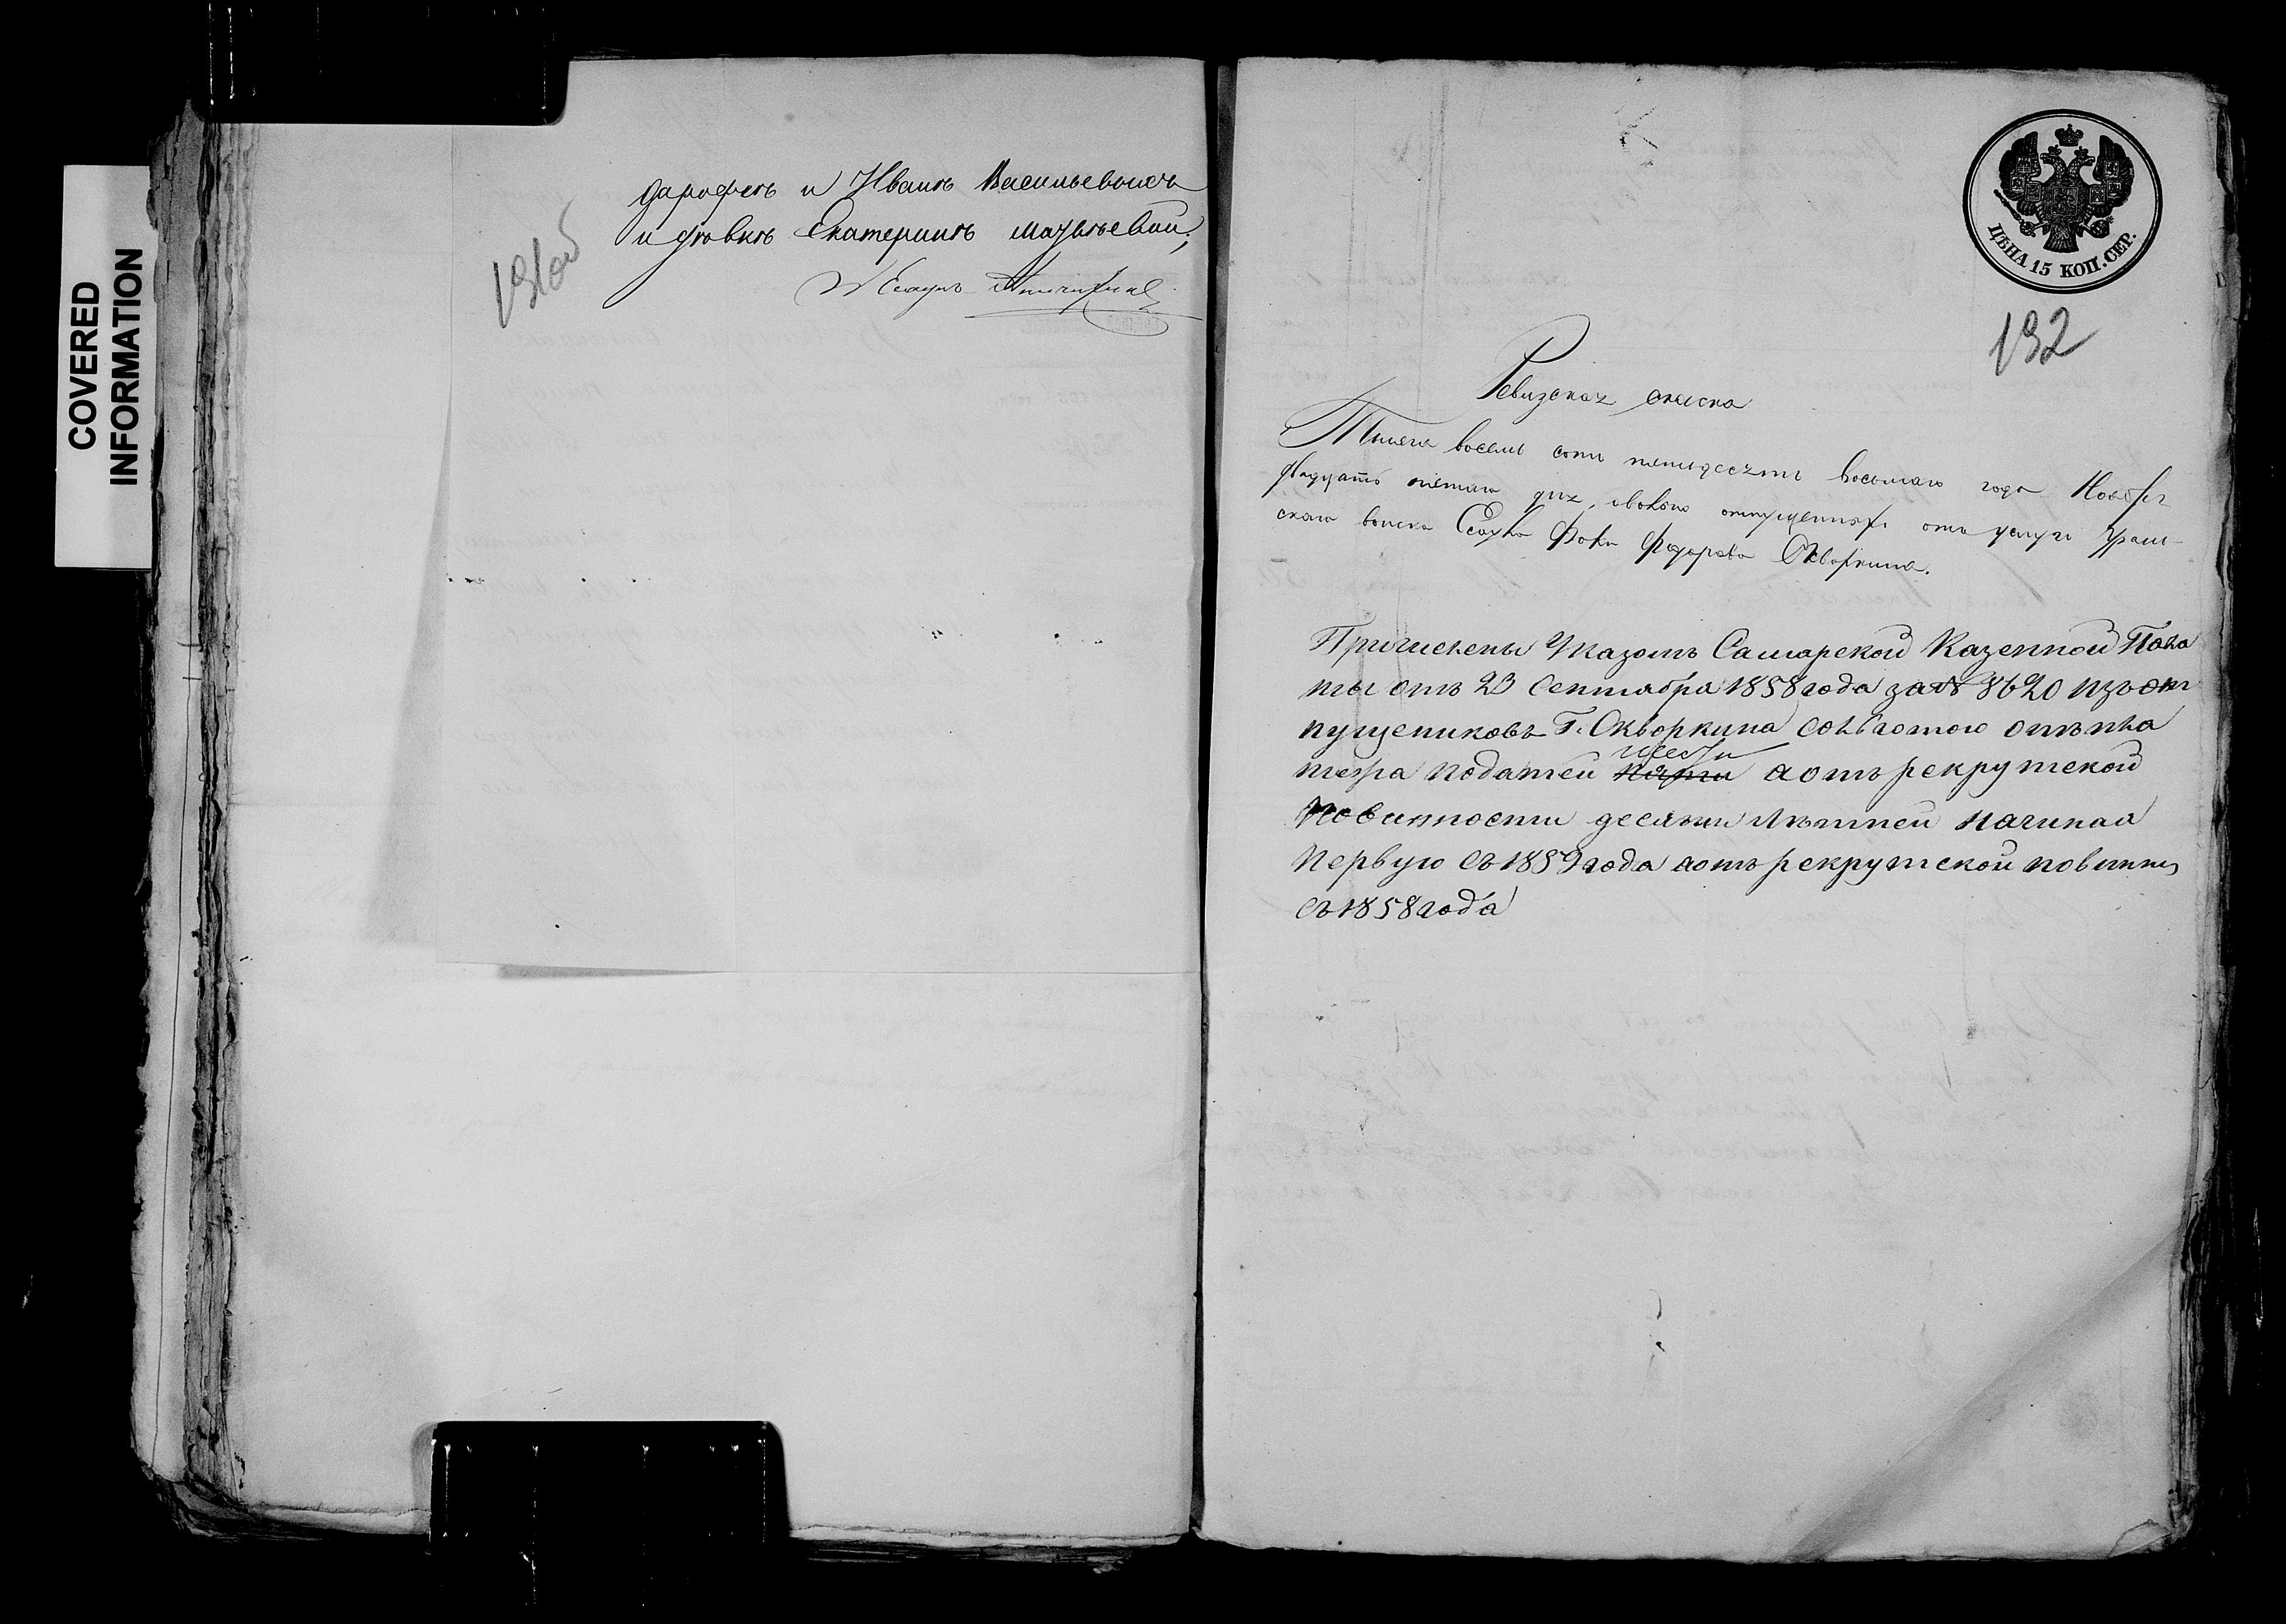 COVERED
INFORMATION
дарофеъ и Иванъ Васильевымъ
и дѣвкѣ Екатеринѣ
131об
Есаулъ
ЦѢНА 15 КОП. СЕР.
132
Ревизская сказка
Тысяча восемь сотъ пятьдесятъ восьмаго года Ноября
двадцать пятаго дня, вольно отпущенныхъ отъ Есаула Ураль-
скаго войска Есаула Фоки Федорова Скворкина.
Причислены Указомъ Самарской Казенной Пала
ты отъ 23 Сентября 1858 года за № 8620 изъ от
пущениковъ Г. Скворкина со льготою отъ пла
тежа податей шести
пяти а отъ рекрутской
Повинности десяти лѣтней начиная
первую съ 1859 года а отъ рекрутской повинн
съ 1858 года